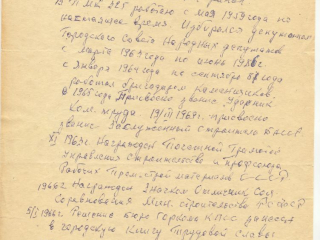 В П МК 325 работаю с мая 1959 года по
настоящее время. Избирался депутатом
Городского Совета Народных депутатов
с марта 1963 года по июнь 198 г.
с Января 1964 года по сентябрь года
работал бригадиром Каменщиков.
В 1965 году Присвоено звание Ударник
Ком. труда 19/III 1969 г. присвоено
звание Заслуженный строитель
XI 1963 г. Награжден Почетной Грамотой
Управления строительства и профсоюза
Рабочих Промстройматериалов СССР
1966 г. Награжден Знаком Отличник Соц
Соревнования Мин. строительства РСФСР
5/I 1966 г. Решение бюро Горкома КПСС занесен
в городскую Книгу Трудовой Славы